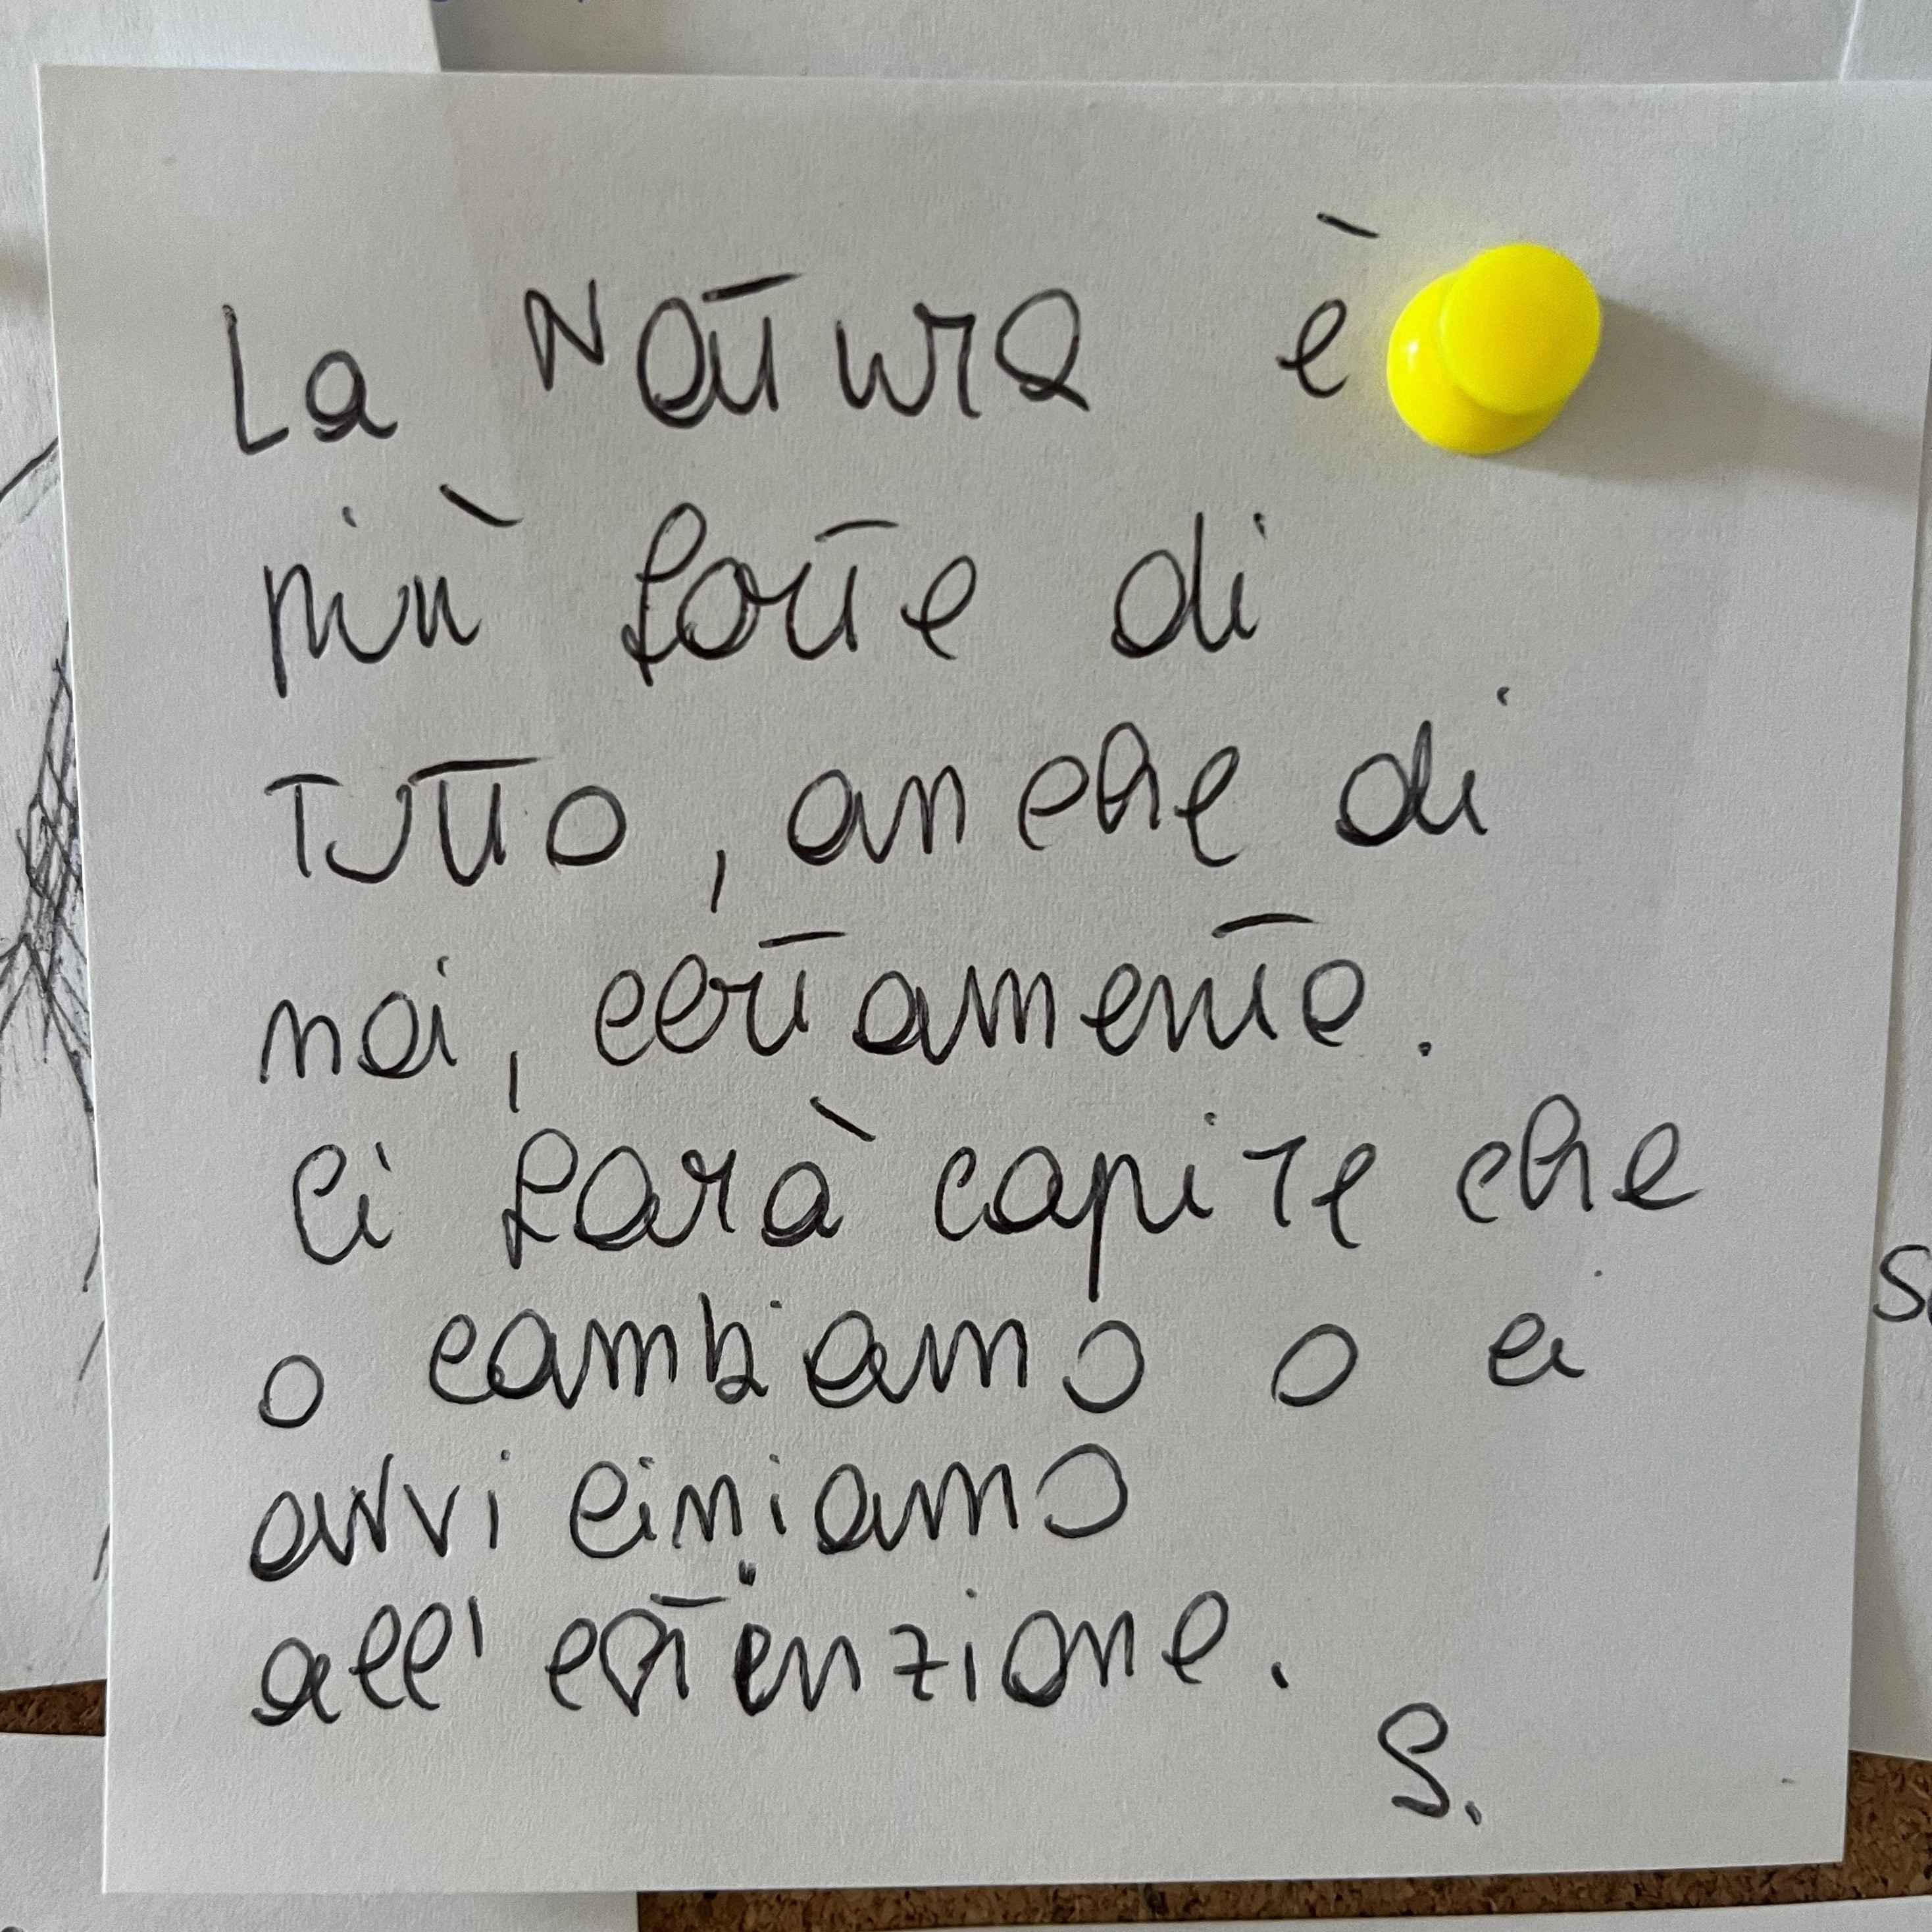 La Natura è
più forte di
tutto, anche di
noi, certamente.
Ci farà capire che
o cambiamo o ci
avviciniamo
all'estenzione.
S.